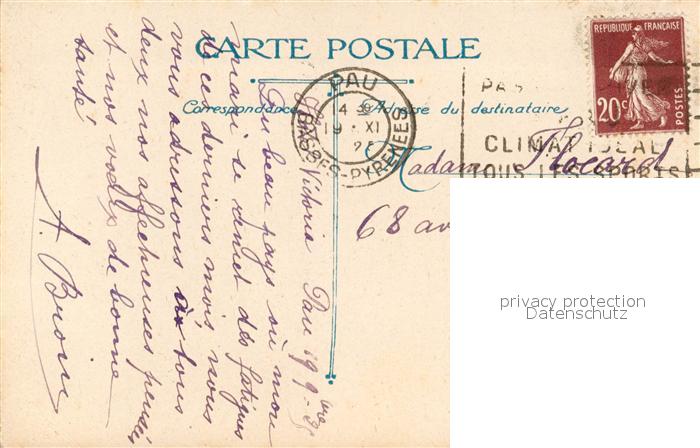 CARTE POSTALE
Correspondance
Adresse du destinataire
RÉPUBLIQUE FRANÇAISE
20c
POSTES
PAU
BASSES-PYRENEES
19 XI
PAS
CLIMAT IDEAL
TOUS LES SPORTS
Madame
68 av
Victoria Pau 19
Du beau pays où mon
mari se remet des fatigues
de ce derniers mois nous
vous adressons à tous
deux nos affectueuses pensées
et nos vœux de bonne
santé
A. Broin
privacy protection
Datenschutz